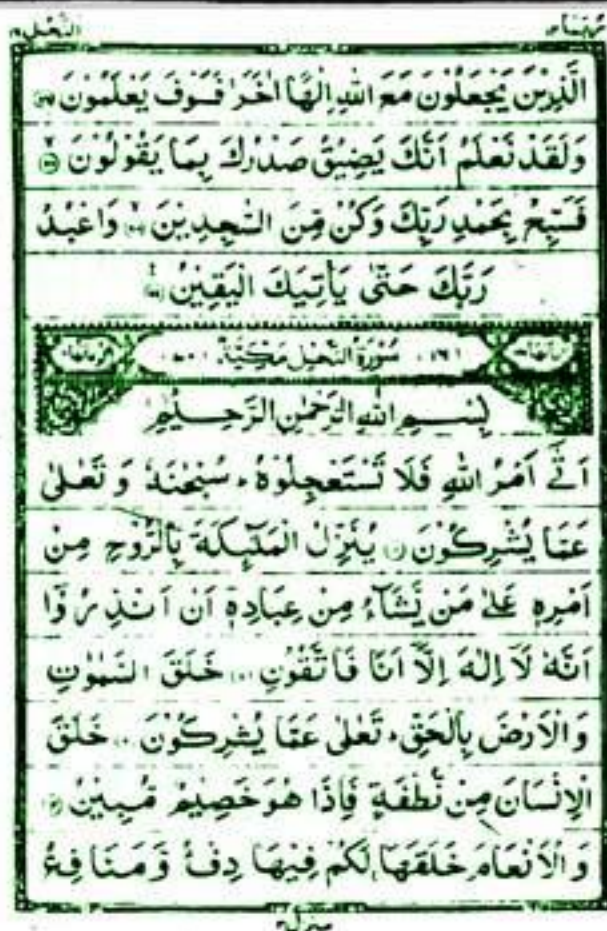 رُبَمَا ١٤ النَّحْل ١٦
الَّذِيْنَ يَجْعَلُوْنَ مَعَ اللهِ اِلٰهًا اٰخَرَ فَسَوْفَ يَعْلَمُوْنَ ﴿٩٦﴾
وَلَقَدْ نَعْلَمُ اَنَّكَ يَضِيْقُ صَدْرُكَ بِمَا يَقُوْلُوْنَ ﴿٩٧﴾
فَسَبِّحْ بِحَمْدِ رَبِّكَ وَكُنْ مِّنَ السّٰجِدِيْنَ ﴿٩٨﴾ وَاعْبُدْ
رَبَّكَ حَتّٰى يَاْتِيَكَ الْيَقِيْنُ ﴿٩٩﴾
﴿١٦﴾ سُوْرَةُ النَّحْلِ مَكِّيَّةٌ ﴿٧٠﴾
بِسْمِ اللهِ الرَّحْمٰنِ الرَّحِيْمِ
اَتٰٓى اَمْرُ اللهِ فَلَا تَسْتَعْجِلُوْهُ ؕ سُبْحٰنَهٗ وَ تَعٰلٰى
عَمَّا يُشْرِكُوْنَ ﴿١﴾ يُنَزِّلُ الْمَلٰٓئِكَةَ بِالرُّوْحِ مِنْ
اَمْرِهٖ عَلٰى مَنْ يَّشَآءُ مِنْ عِبَادِهٖٓ اَنْ اَنْذِرُوْٓا
اَنَّهٗ لَآ اِلٰهَ اِلَّآ اَنَا فَاتَّقُوْنِ ﴿٢﴾ خَلَقَ السَّمٰوٰتِ
وَالْاَرْضَ بِالْحَقِّ ؕ تَعٰلٰى عَمَّا يُشْرِكُوْنَ ﴿٣﴾ خَلَقَ
الْاِنْسَانَ مِنْ نُّطْفَةٍ فَاِذَا هُوَ خَصِيْمٌ مُّبِيْنٌ ﴿٤﴾
وَالْاَنْعَامَ خَلَقَهَا لَكُمْ فِيْهَا دِفْءٌ وَّمَنَافِعُ
منزل ٣